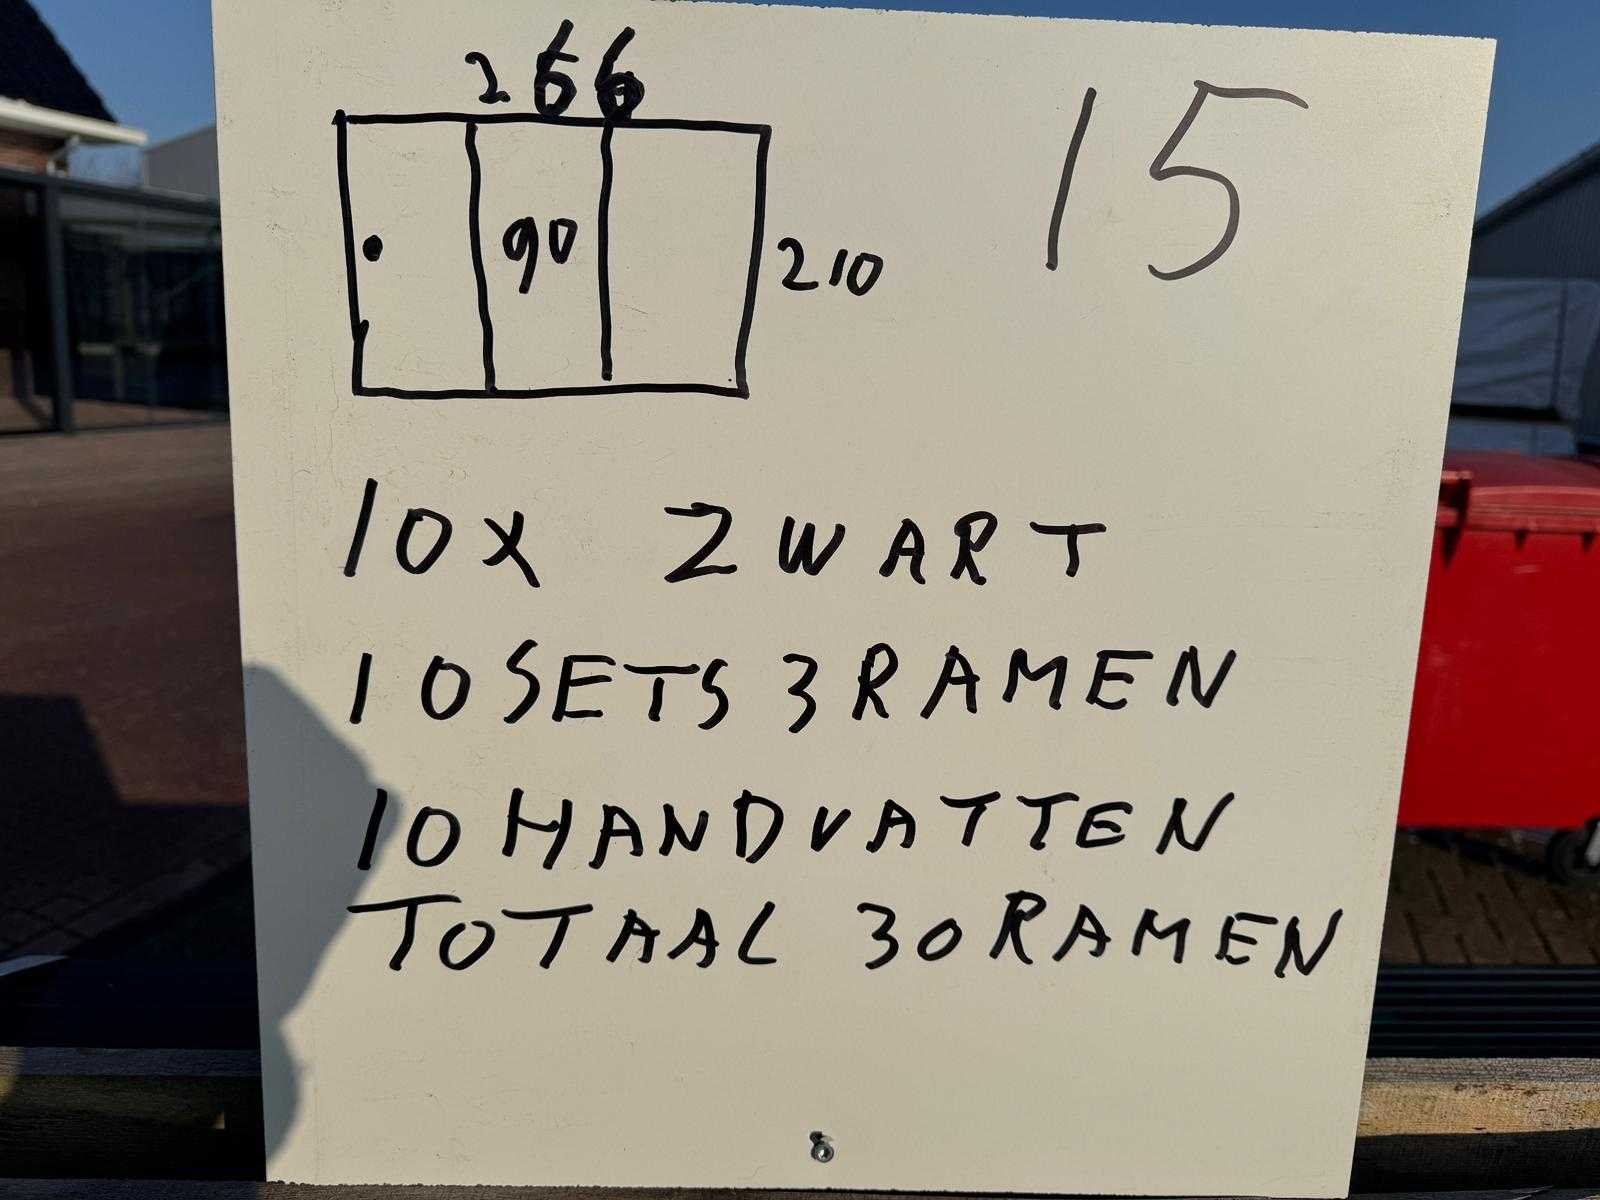 266
15
90
210
10X ZWART
10 SETS 3 RAMEN
10 HANDVATTEN
TOTAAL 30 RAMEN